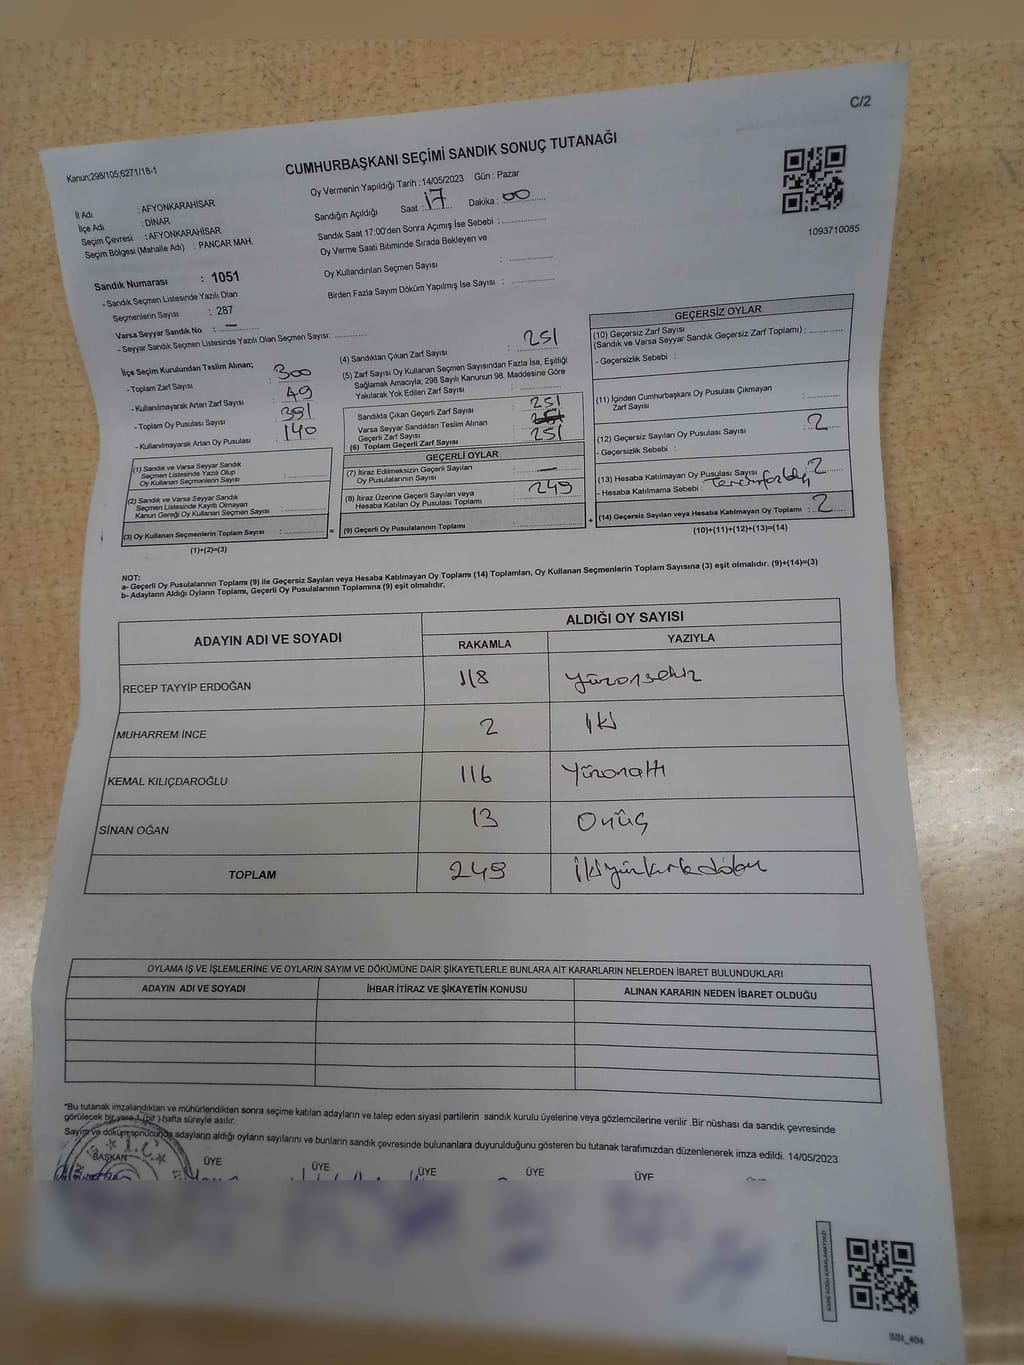 C/2
Kanun;298/105;6271/18-1
CUMHURBAŞKANI SEÇİMİ SANDIK SONUÇ TUTANAĞI
Oy Vermenin Yapıldığı Tarih : 14/05/2023 Gün : Pazar
İl Adı : AFYONKARAHİSAR
İlçe Adı : DİNAR
Seçim Çevresi : AFYONKARAHİSAR
Seçim Bölgesi (Mahalle Adı) : PANCAR MAH.
Sandığın Açıldığı Saat : 17 Dakika : 00
Sandık Saat 17:00'den Sonra Açımış İse Sebebi :
Oy Verme Saati Bitiminde Sırada Bekleyen ve
Oy Kullandırılan Seçmen Sayısı :
Birden Fazla Sayım Döküm Yapılmış İse Sayısı :
1093710085
Sandık Numarası : 1051
- Sandık Seçmen Listesinde Yazılı Olan
Seçmenlerin Sayısı : 287
Varsa Seyyar Sandık No : —
- Seyyar Sandık Seçmen Listesinde Yazılı Olan Seçmen Sayısı:
İlçe Seçim Kurulundan Teslim Alınan;
- Toplam Zarf Sayısı : 300
- Kullanılmayarak Artan Zarf Sayısı : 49
- Toplam Oy Pusulası Sayısı : 391
- Kullanılmayarak Artan Oy Pusulası : 140
(1) Sandık ve Varsa Seyyar Sandık
Seçmen Listesinde Yazılı Olup
Oy Kullanan Seçmenlerin Sayısı :
(2) Sandık ve Varsa Seyyar Sandık
Seçmen Listesinde Kayıtlı Olmayan
Kanun Gereği Oy Kullanan Seçmen Sayısı :
(3) Oy Kullanan Seçmenlerin Toplam Sayısı :
(1)+(2)=(3)
(4) Sandıktan Çıkan Zarf Sayısı : 251
(5) Zarf Sayısı Oy Kullanan Seçmen Sayısından Fazla İse, Eşitliği
Sağlamak Amacıyla; 298 Sayılı Kanunun 98. Maddesine Göre
Yakılarak Yok Edilen Zarf Sayısı :
Sandıkta Çıkan Geçerli Zarf Sayısı : 251
Varsa Seyyar Sandıktan Teslim Alınan
Geçerli Zarf Sayısı :
(6) Toplam Geçerli Zarf Sayısı : 251
GEÇERLİ OYLAR
(7) İtiraz Edilmeksizin Geçerli Sayılan
Oy Pusulalarının Sayısı : —
(8) İtiraz Üzerine Geçerli Sayılan veya
Hesaba Katılan Oy Pusulası Toplamı : 249
= (9) Geçerli Oy Pusulalarının Toplamı :
GEÇERSİZ OYLAR
(10) Geçersiz Zarf Sayısı
(Sandık ve Varsa Seyyar Sandık Geçersiz Zarf Toplamı) :
- Geçersizlik Sebebi :
(11) İçinden Cumhurbaşkanı Oy Pusulası Çıkmayan
Zarf Sayısı :
(12) Geçersiz Sayılan Oy Pusulası Sayısı : 2
- Geçersizlik Sebebi :
(13) Hesaba Katılmayan Oy Pusulası Sayısı : 2
- Hesaba Katılmama Sebebi :
+ (14) Geçersiz Sayılan veya Hesaba Katılmayan Oy Toplamı : 2
(10)+(11)+(12)+(13)=(14)
NOT:
a- Geçerli Oy Pusulalarının Toplamı (9) ile Geçersiz Sayılan veya Hesaba Katılmayan Oy Toplamı (14) Toplamları, Oy Kullanan Seçmenlerin Toplam Sayısına (3) eşit olmalıdır. (9)+(14)=(3)
b- Adayların Aldığı Oyların Toplamı, Geçerli Oy Pusulalarının Toplamına (9) eşit olmalıdır.
ADAYIN ADI VE SOYADI ALDIĞI OY SAYISI
RAKAMLA YAZIYLA
RECEP TAYYİP ERDOĞAN 118 Yüzonsekiz
MUHARREM İNCE 2 İki
KEMAL KILIÇDAROĞLU 116 Yüzonaltı
SİNAN OĞAN 13 Onüç
TOPLAM 249 İkiyüzkırkdokuz
OYLAMA İŞ VE İŞLEMLERİNE VE OYLARIN SAYIM VE DÖKÜMÜNE DAİR ŞİKAYETLERLE BUNLARA AİT KARARLARIN NELERDEN İBARET BULUNDUKLARI
ADAYIN ADI VE SOYADI İHBAR İTİRAZ VE ŞİKAYETİN KONUSU ALINAN KARARIN NEDEN İBARET OLDUĞU
*Bu tutanak imzalandıktan ve mühürlendikten sonra seçime katılan adayların ve talep eden siyasi partilerin sandık kurulu üyelerine veya gözlemcilerine verilir .Bir nüshası da sandık çevresinde
görülecek bir yere 1 (bir) hafta süreyle asılır.
Sayım ve döküm sonucunda adayların aldığı oyların sayılarını ve bunların sandık çevresinde bulunanlara duyurulduğunu gösteren bu tutanak tarafımızdan düzenlenerek imza edildi. 14/05/2023
T.C.
BAŞKAN ÜYE ÜYE ÜYE ÜYE ÜYE
SSI_404